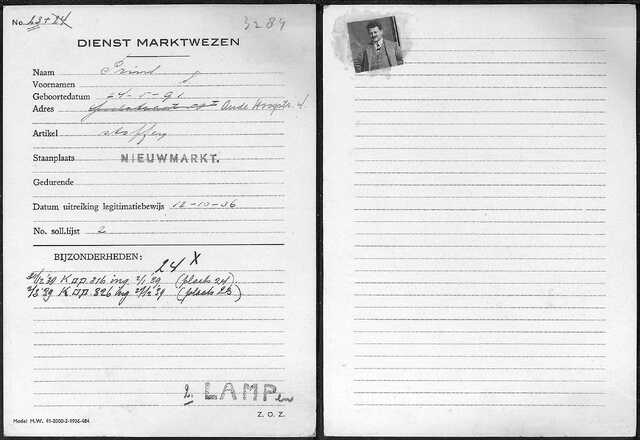 No. 23 + 24
3289
DIENST MARKTWEZEN
Naam
Voornamen J
Geboortedatum 24-5-91
Adres Oude Hoogstr.
Artikel stoffen
Staanplaats NIEUWMARKT.
Gedurende
Datum uitreiking legitimatiebewijs 12-10-36
No. soll.lijst 2
BIJZONDERHEDEN:
24 x
K op. 316 ing. 2/1 '39 (plaats 24)
K op. 826 ing 27/12 '39 (plaats 23)
2. LAMPen
Z. O. Z.
Model M.W. 41-2000-2-1936-484